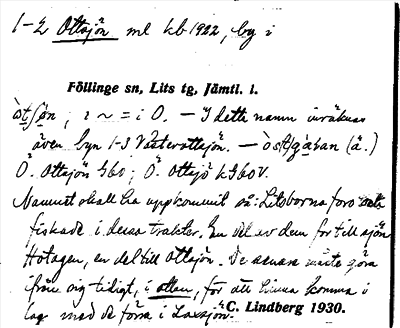 1-2 Ottsjön ml kb 1922, by i
Föllinge sn, Lits tg, Jämtl. l.
i ~ = i O. — I detta namn inräknas
även byn 1-3 Västerottsjön. — (ä.)
Ö. Ottsjön Gbo; Ö. Ottsjö kGbov.
Namnet skall ha uppkommit så: Litsborna foro och
fiskade i dessa trakter. En del av dem for till sjön
Hotagen, en del till Ottsjön. De senare måste göra
ifrån sig tidigt, i ottan, för att hinna komma i
lag med de förra i Laxsjön."
C. Lindberg 1930.